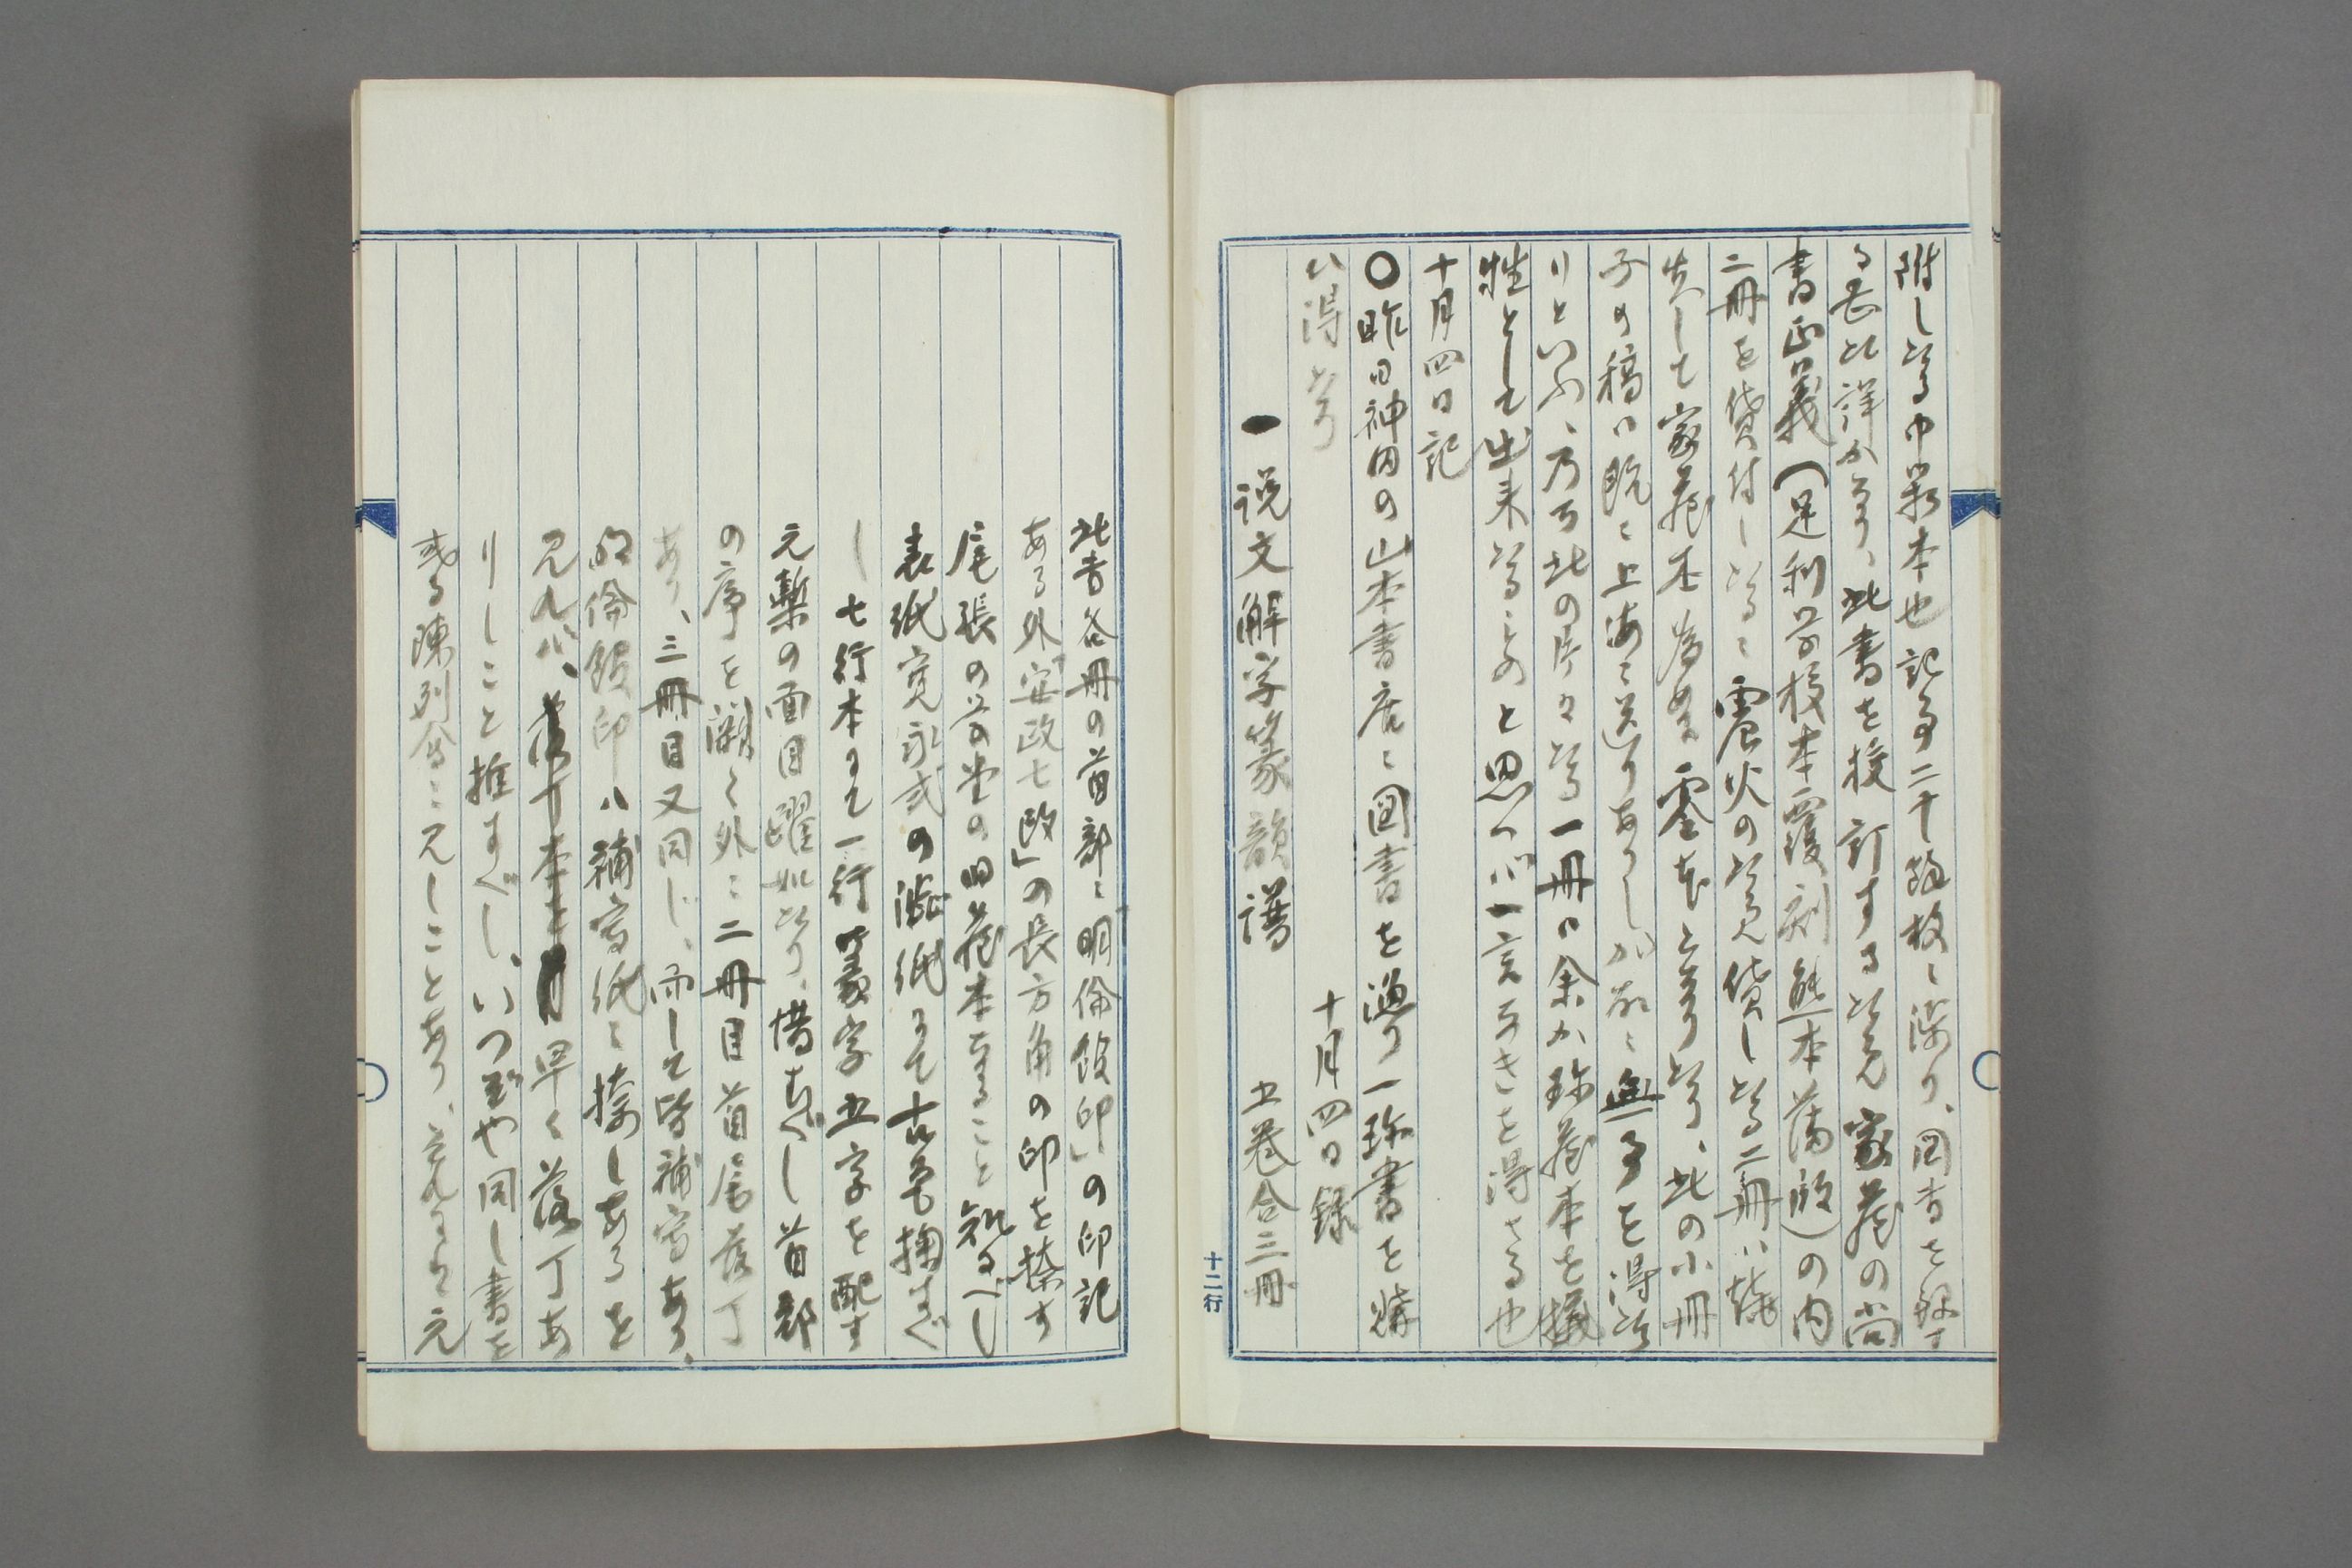 附しある巾箱本也記事二十数枚に渉り、同書を銭丁
る甚た詳かなり、此書を校訂するに家蔵の尚
書正義(足利学校本覆刻熊本藩版)の内
二冊を貸付しあるに震火の為貸しある二冊ハ焼
失して家蔵本為めに零本となりたり、此の小冊
子の稿ハ既に上海に送りありしか故に無事を得た
りといふ、乃ち此の片々たる一冊ハ余か珍蔵本を犠
牲として出来たるものと思へバ一言なきを得さる也
十月四日記
〇昨日神田の山本書店に図書を過り一珍書を購
ひ得たり
十月四日録
一 説文解字篆韻譜 五巻合三冊
十二行
此書各冊の首部に「明倫館印」の印記
ある外「安政七改」の長方角の印を捺す
尾張の学堂の旧蔵本なること知るべし
表紙寛永式の澁紙にて古色掬すべ
し七行本にて一行篆字五字を配す
元槧の面目躍如たり、惜むべし首部
の序を闕く外に二冊目首尾落丁
あり、三冊目又同じ、而して皆補写あり
明倫館印ハ補写紙に捺しあるを
見れバ、早く落丁あ
りしこと推すべし、いつぞや同し書を
或る陳列会に見しことあり、それにハ元